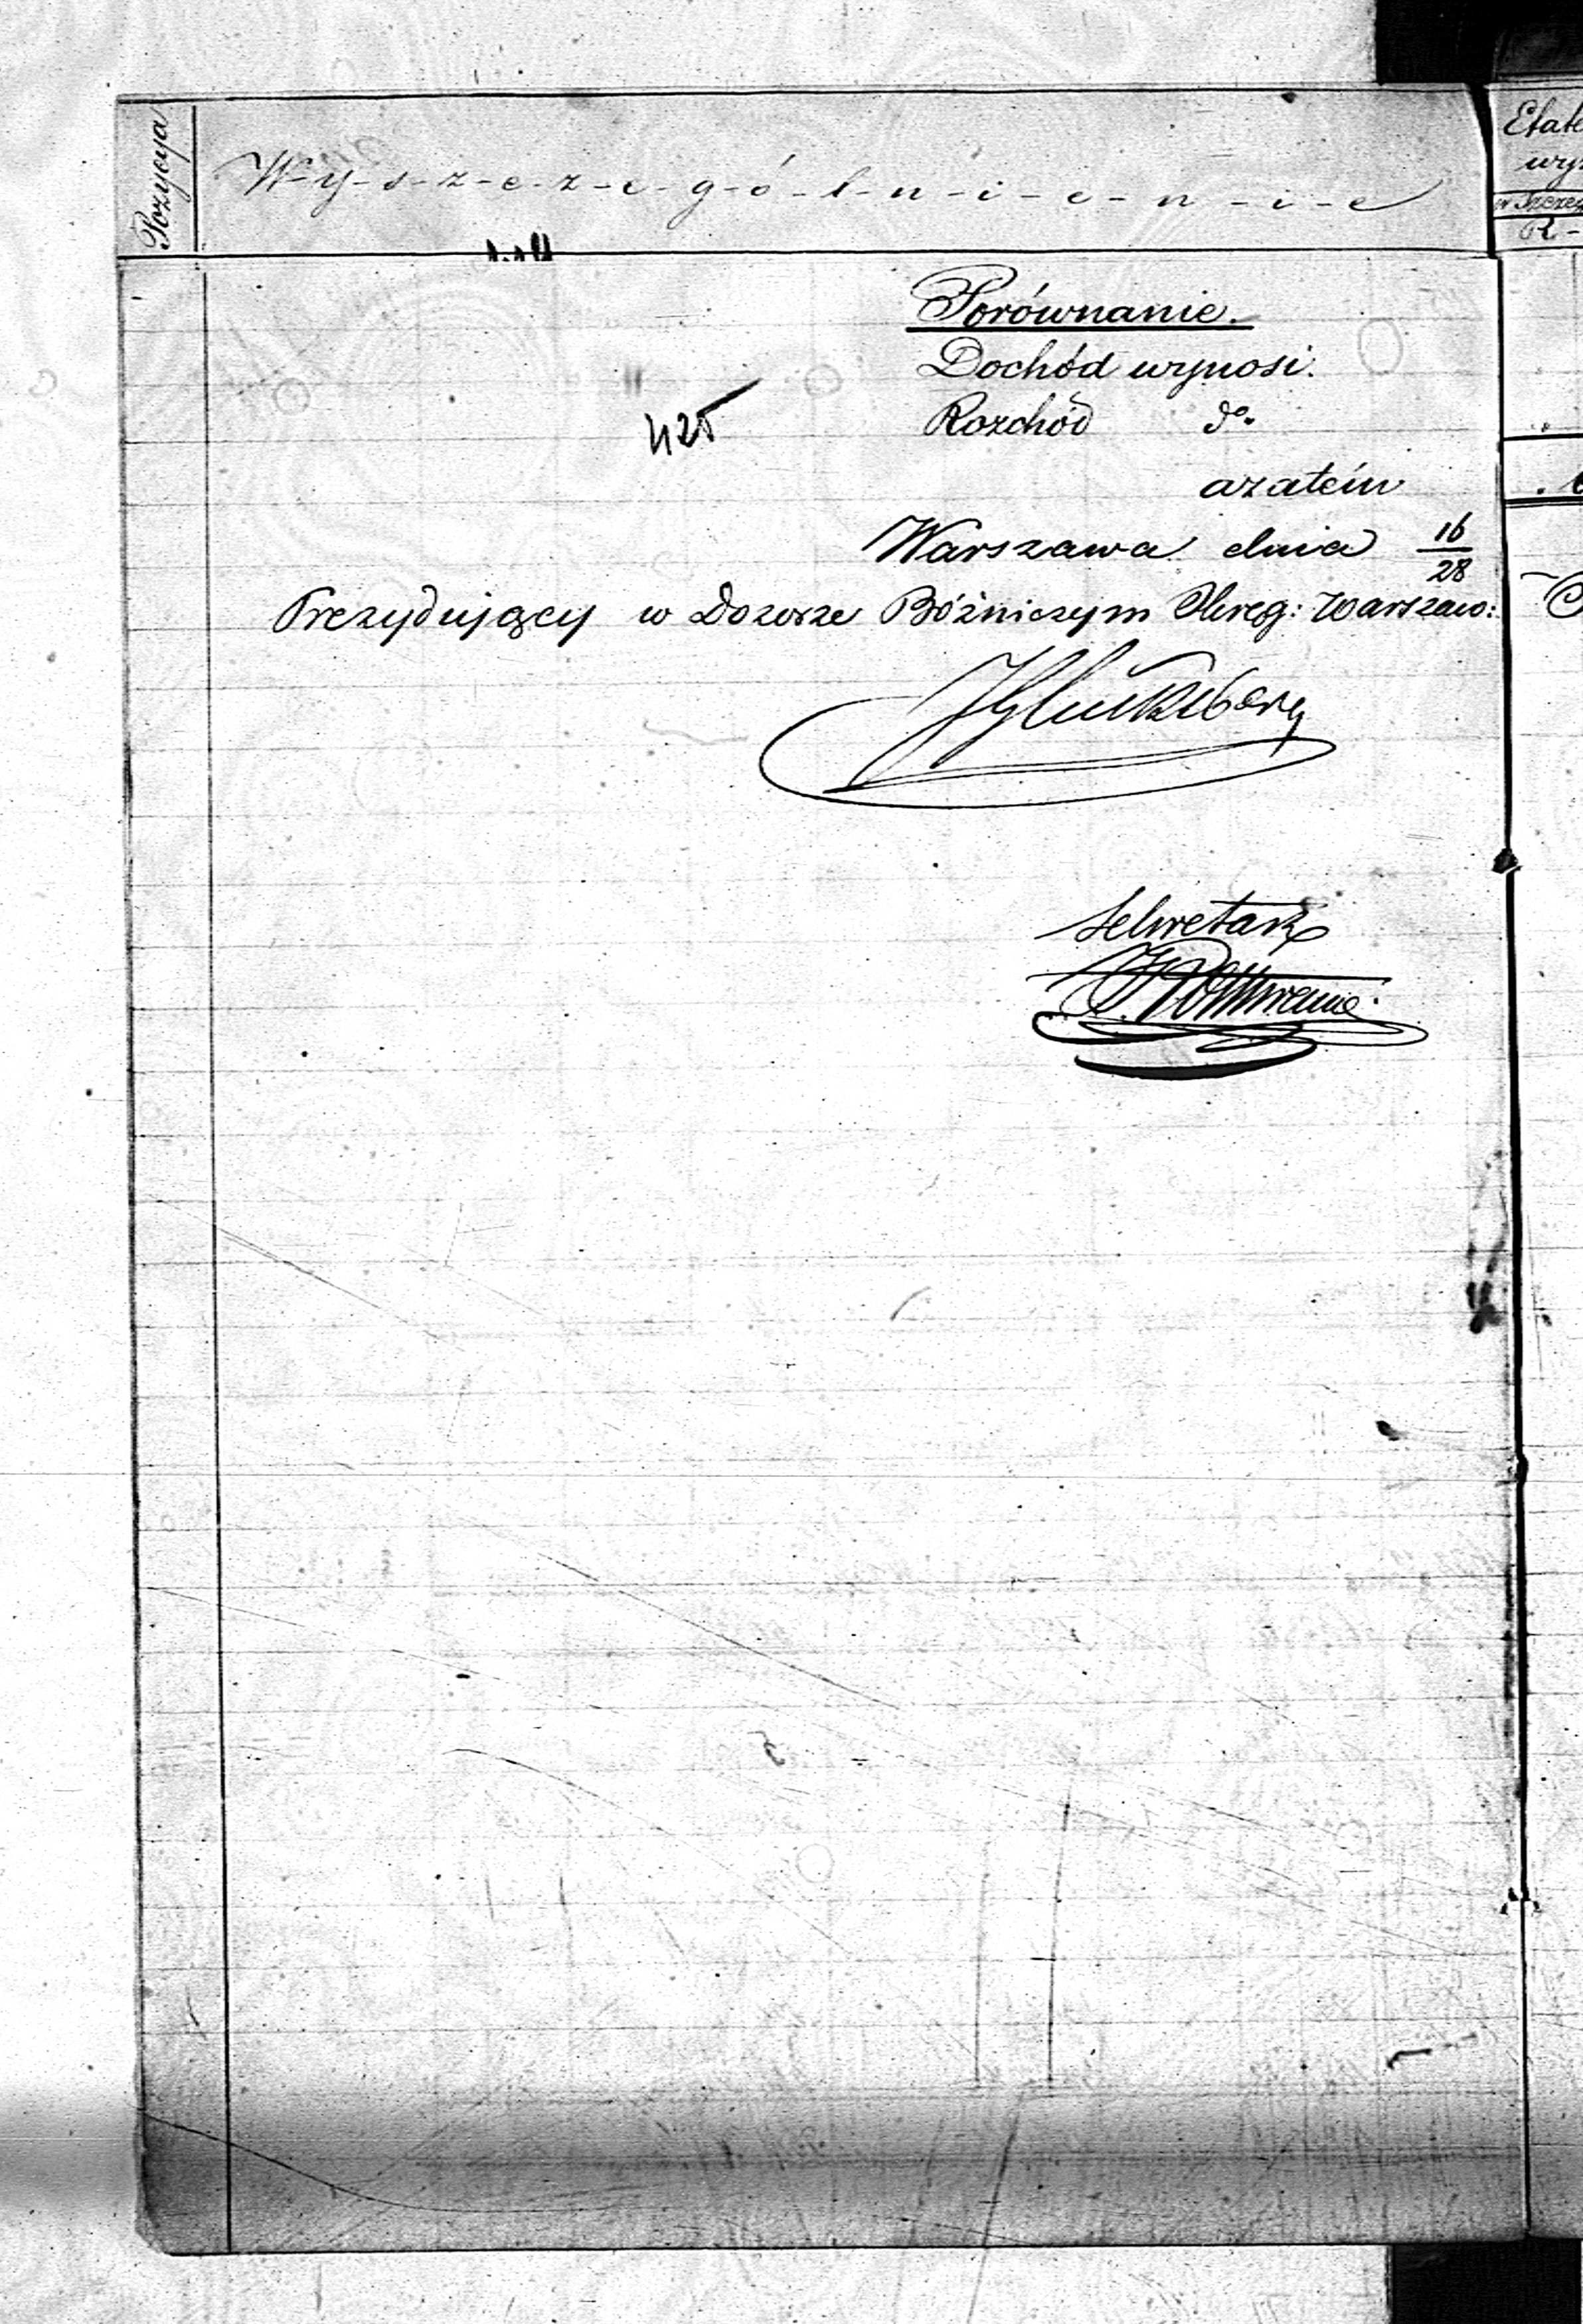 Pozycya
W-y-s-z-c-z-e-g-ó-l-n-i-e-n-i-e
Porównanie.
Dochód wynosi.
425
Rozchód do.
azatém
Warszawa dnia 16/28
Prezydujący w Dozorze Bóżniczym Okręg: Warszaw:
JGlücksberg
Sekretarz
Etat
wy
R-